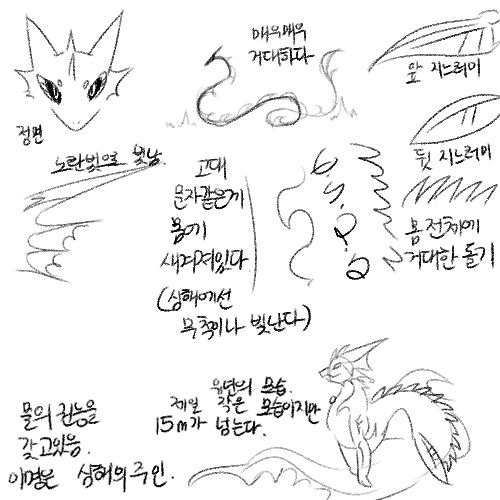 매우매우
거대하다
앞 지느러미
정면
노란빛으로 빛남.
뒷 지느러미
고대
문자같은게
몸에
새겨져있다
(심해에선
무척이나 빛난다)
몸 전체에
거대한 돌기
유년의 모습.
제일 작은 모습이지만
15m가 넘는다.
물의 권능을
갖고있음.
이명은 심해의 주인.